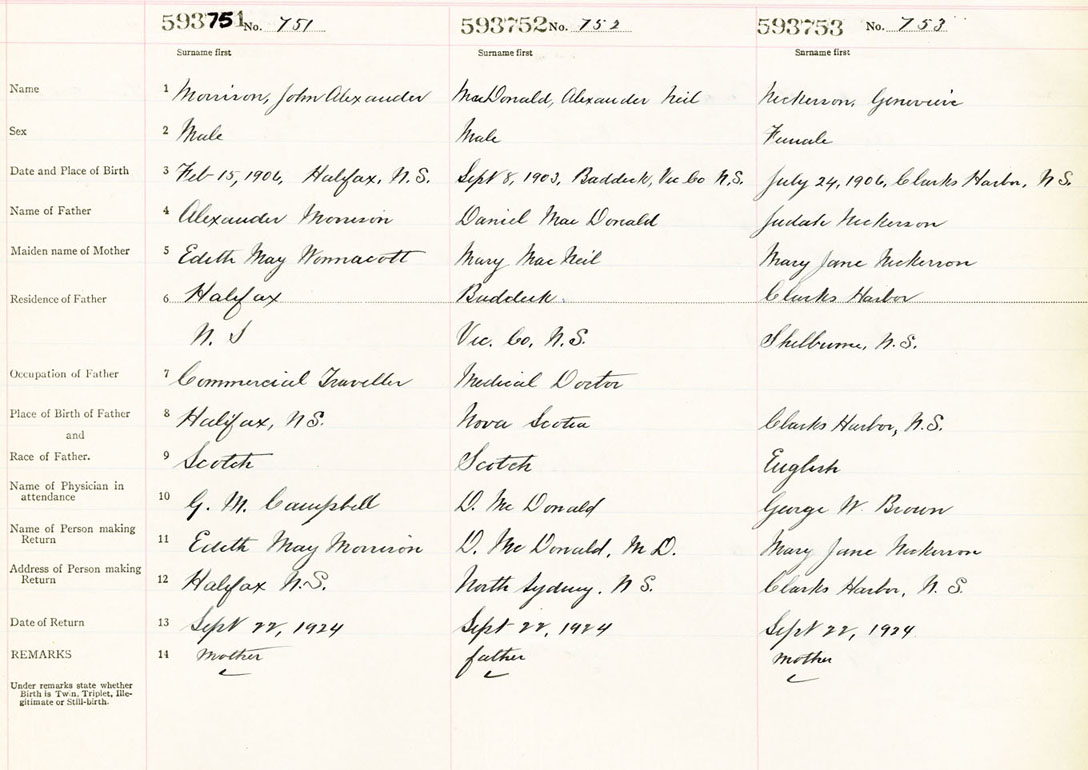 593751 No. 751 593752 No. 752 593753 No. 753
Surname first Surname first Surname first
Name 1 Morrison, John Alexander MacDonald, Alexander Neil Nickerson, Genevieve
Sex 2 Male Male Female
Date and Place of Birth 3 Feb 15, 1906, Halifax, N.S. Sept 8, 1903, Baddeck, Vic Co N.S. July 24, 1906, Clarks Harbor, N.S.
Name of Father 4 Alexander Morrison Daniel MacDonald Judah Nickerson
Maiden name of Mother 5 Edith May Wonnacott Mary MacNeil Mary Jane Nickerson
Residence of Father 6 Halifax Baddeck. Clarks Harbor
N.S Vic. Co, N.S. Shelburne, N.S.
Occupation of Father 7 Commercial Traveller Medical Doctor
Place of Birth of Father 8 Halifax, NS. Nova Scotia Clarks Harbor, N.S.
and
Race of Father. 9 Scotch Scotch English
Name of Physician in
attendance 10 G. M. Campbell D. McDonald George W. Brown
Name of Person making
Return 11 Edith May Morrison D. McDonald, M.D. Mary Jane Nickerson
Address of Person making
Return 12 Halifax N.S. North Sydney. N S. Clarks Harbor, N.S.
Date of Return 13 Sept 22, 1924 Sept 22, 1924 Sept 22, 1924
REMARKS 14 mother father mother
Under remarks state whether
Birth is Twin, Triplet, Ille-
gitimate or Still-birth.